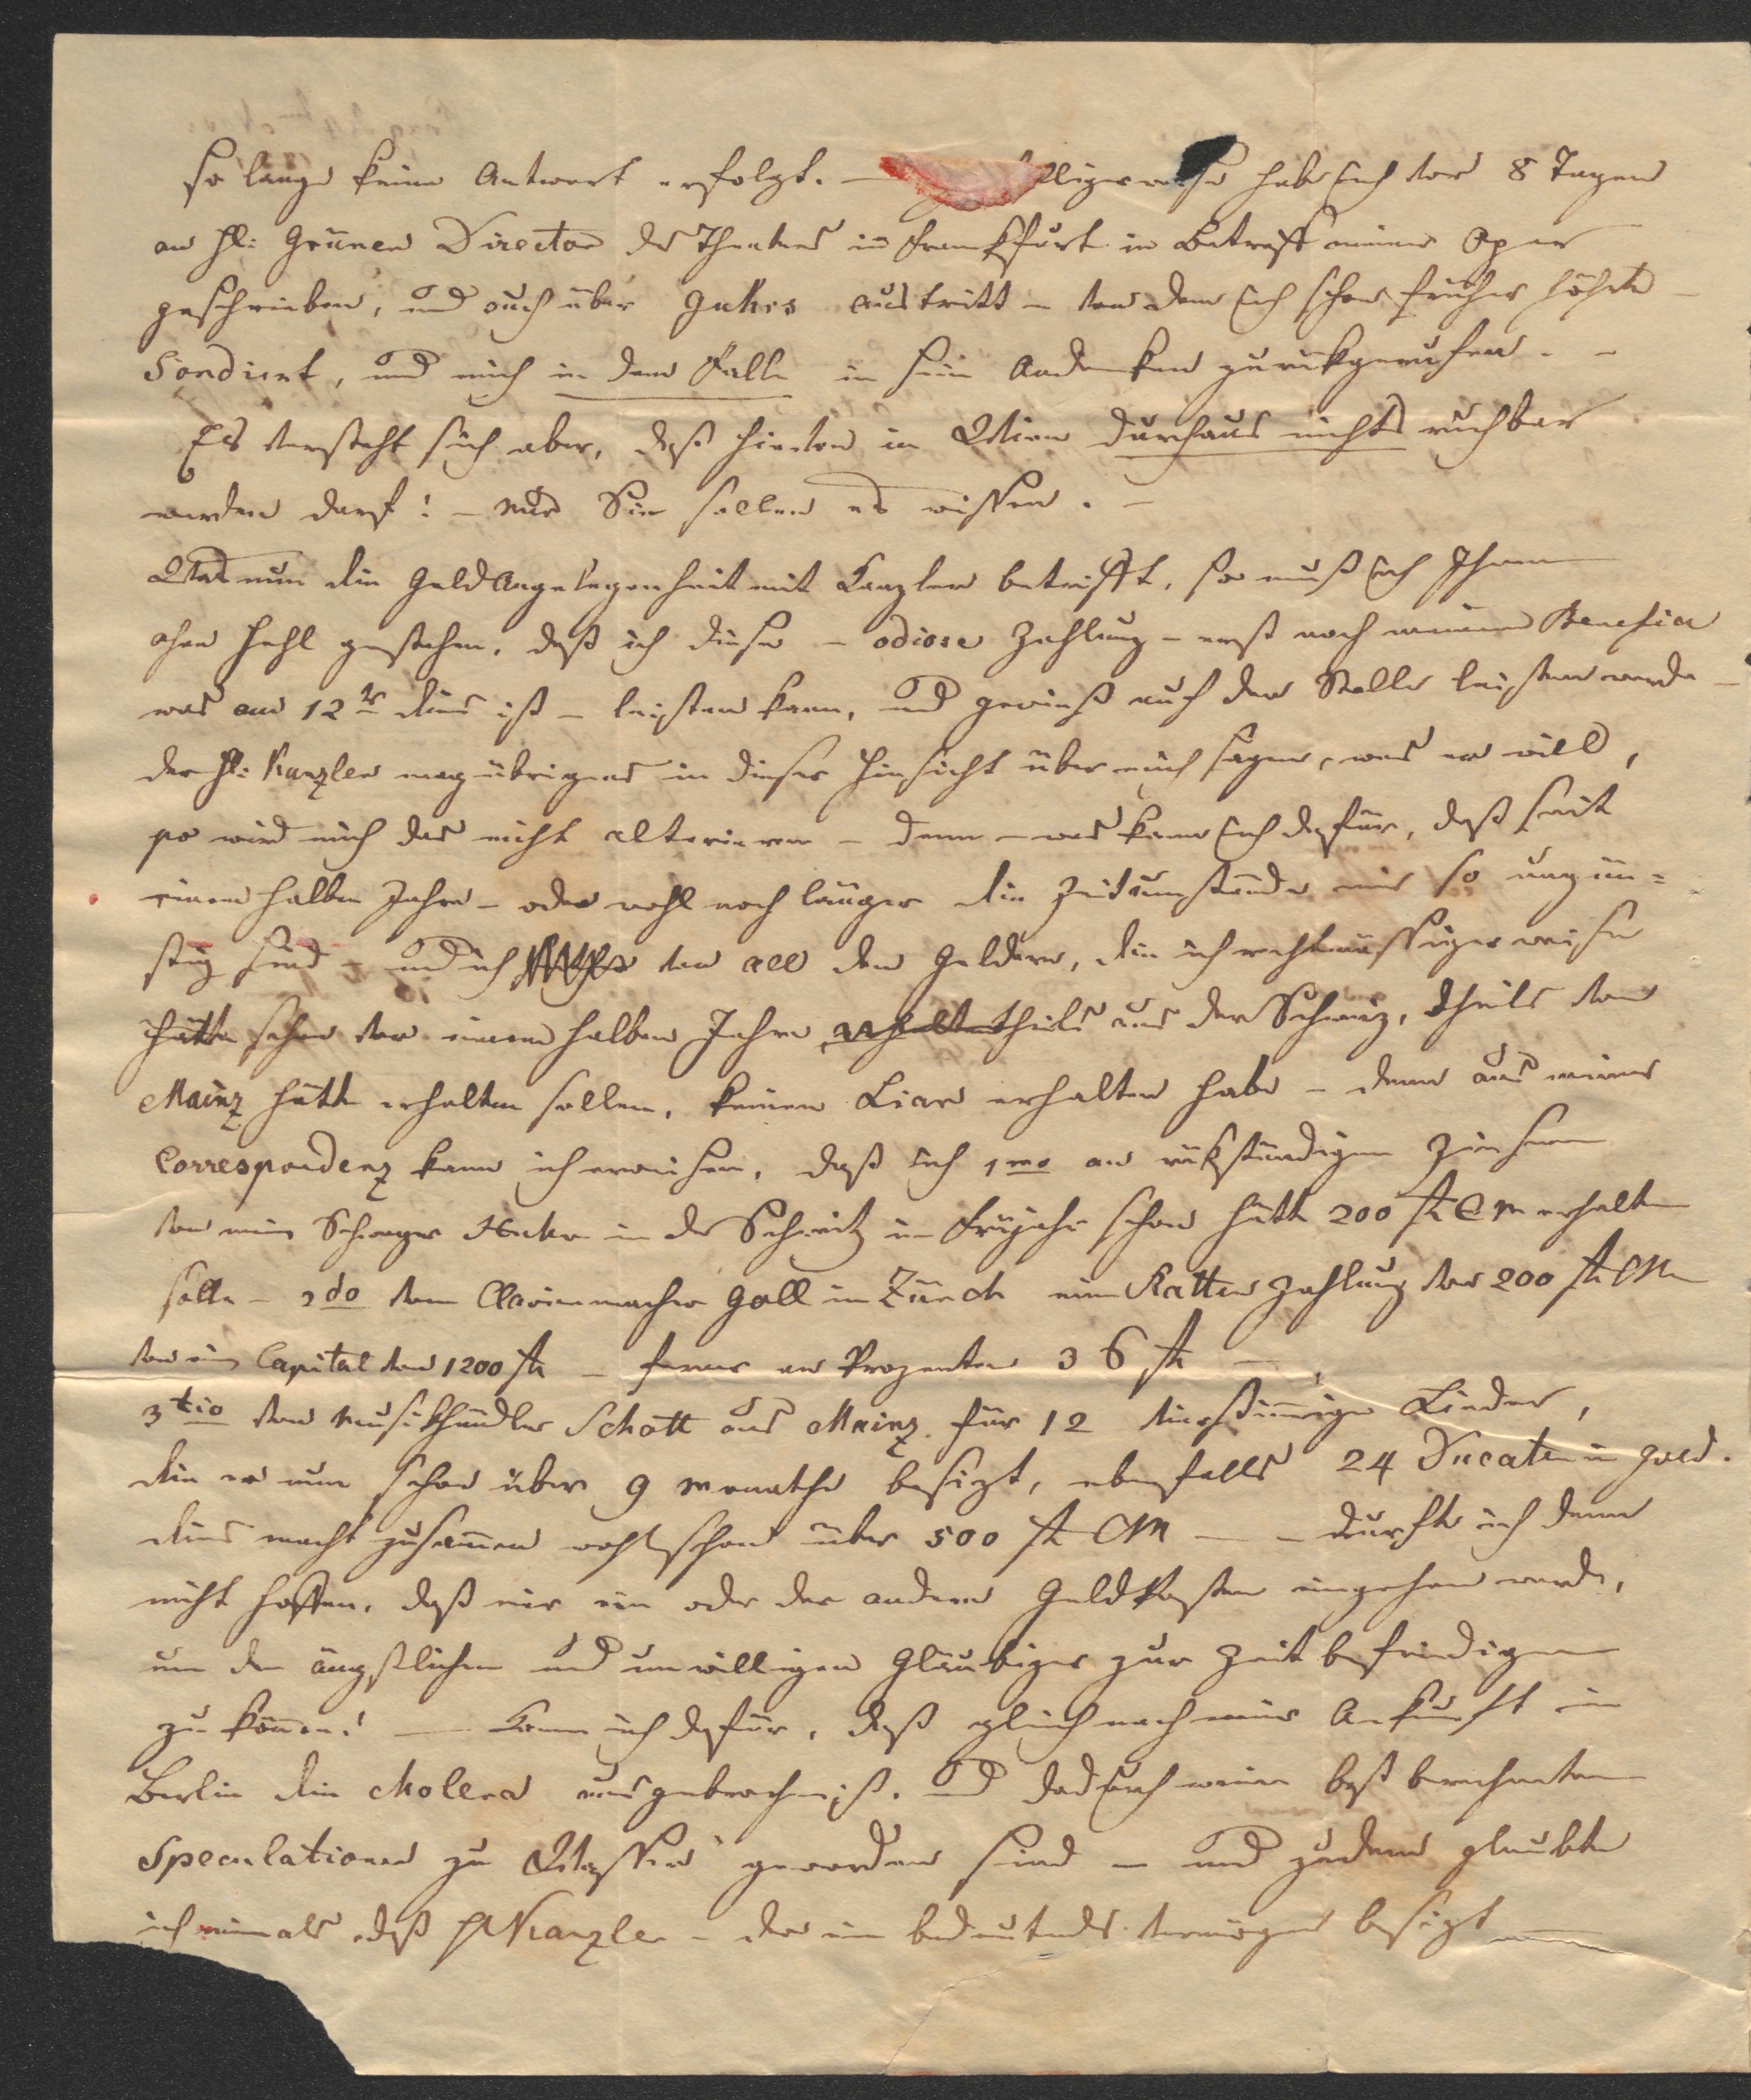 so lange keine Antwort erfolgt. — lligerweise habe ich vor 8 Tagen
an H: Grüner Director des Theaters in Frankfurt in Betreff meiner Oper
geschrieben, und auch über Guhrs Austritt – von dem ich schon früher hörte –
Sondirt, und mich in dem Falle in sein Andenken zurükgerufen. –
Es versteht sich aber, daß hievon in Wien durchaus nichts ruchbar
werden darf! – nur Sie sollen es wissen. –
Was nun die Geld Angelegenheit mit Kanzler betrifft, so muß ich Ihnen
ohne Hehl gestehen, daß ich diese – odiose Zahlung – erst nach meiner Benefice
was am 12t dies ist – leisten kann, und gewiß auf der Stelle leisten werde –
der H: Kanzler mag übrigens in dieser Hinsicht über mich sagen, was er will,
so wird mich das nicht alteriren – denn – was kann ich dafür, daß seit
einem halben Jahre – oder wohl noch länger die Zeitumstände mir so ungün=
stig sind – und ich von all den Geldern, die ich rechtmässigerweise
hätte schon vor einem halben Jahre erhalten theils aus der Schweiz, theils von
Mainz hätte erhalten sollen, keinen Liar erhalten habe – denn aus meiner
Correspondenz kann ich erweisen, daß ich 1mo an rükständigen Zinsen
von mein Schwager in der Schweitz im Frühjahr schon hätte 200 fl CM erhalten
solle – 2do vom Claviermacher Goll in Zürch eine Ratten Zahlung von 200 fl CM
von ein Capital von 1200 fl – ferner an Prozenten 36 fl –,
3tio vom Musikhändler Schott aus Mainz für 12 vierstimmige Lieder,
die er nun schon über 9 Monathe besizt, ebenfalls 24 Ducaten in Gold.
dies macht zusammen wohl schon über 500 fl CM – – durfte ich denn
nicht hoffen, daß mir ein oder der andere Geldposten eingehen werde,
um den ängstlichen und unwilligen Gläubiger zur Zeit befriedigen
zu können! — Kann ich dafür, daß gleich nach meiner Ankunft in
Berlin die Cholera ausgebrochen ist, und dadurch meine best berechneten
Speculationen zu Wasser geworden sind – und zudem glaubte
ich niemals, daß H Kanzler – der ein bedeutends Vermögen besizt –